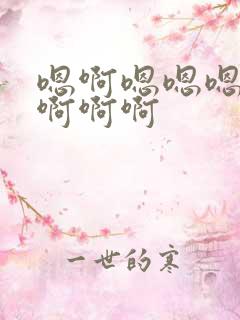 嗯啊嗯嗯嗯
啊啊啊
一世的寒